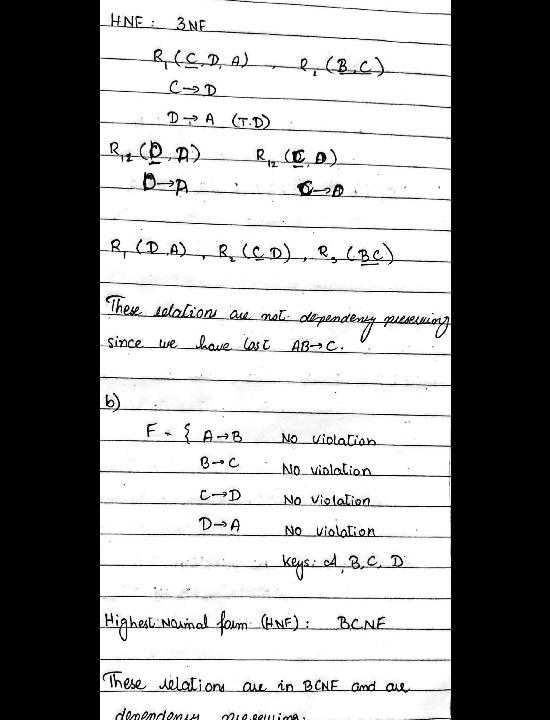 HNF: 3NF
R₁ (C, D, A) , R₂ (B, C)
C→D
D→A (T.D)
R₁₂ (D, A) R₁₂ (C, D)
D→A C→D
R₁ (D.A) , R₂ (C D) , R₃ (BC)
These relations are not dependency preserving
since we have lost AB→C.
b)
F = { A→B No violation
B→C No violation
C→D No violation
D→A No violation
Keys: A, B, C, D
Highest Normal form (HNF) : BCNF
These relations are in BCNF and are
dependency preserving.